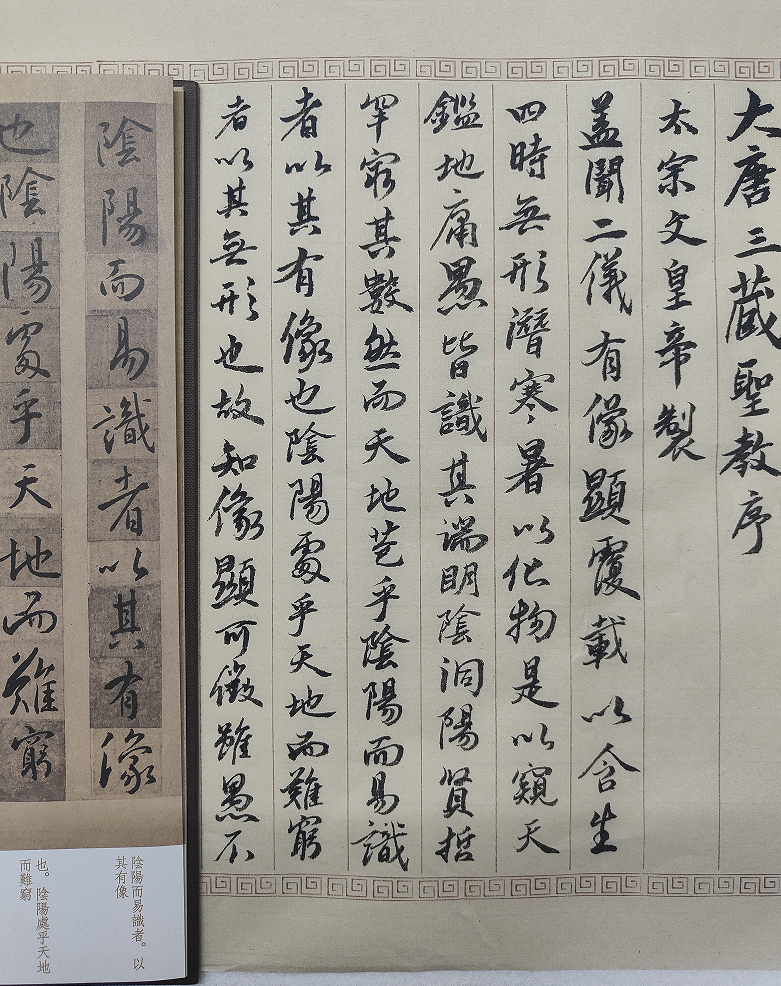 大唐三藏聖教序
太宗文皇帝製
蓋聞二儀有像顯覆載以含生
四時無形潛寒暑以化物是以窺天
鑑地庸愚皆識其端明陰洞陽賢哲
罕窮其數然而天地苞乎陰陽而易識
者以其有像也陰陽處乎天地而難窮
者以其無形也故知像顯可徵雖愚不
陰陽而易識者以其有像
也陰陽處乎天地而難窮
陰陽而易識者。以
其有像
也。陰陽處乎天地
而難窮